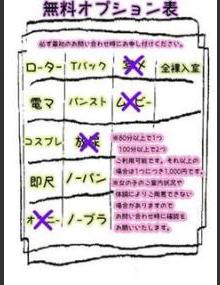 無料オプション表
必ず最初のお問い合わせ時にお申し付けください。
ローター Tバック 全裸入室
電マ パンスト
コスプレ
即尺 ノーパン
ノーブラ
※80分以上で1つ
100分以上で2つ
ご利用可能です。それ以上の
場合は1つにつき1,000円です。
※女の子のご案内状況や
体調によりご用意できない
場合がありますので
お問い合わせ時に確認を
お願いいたします。